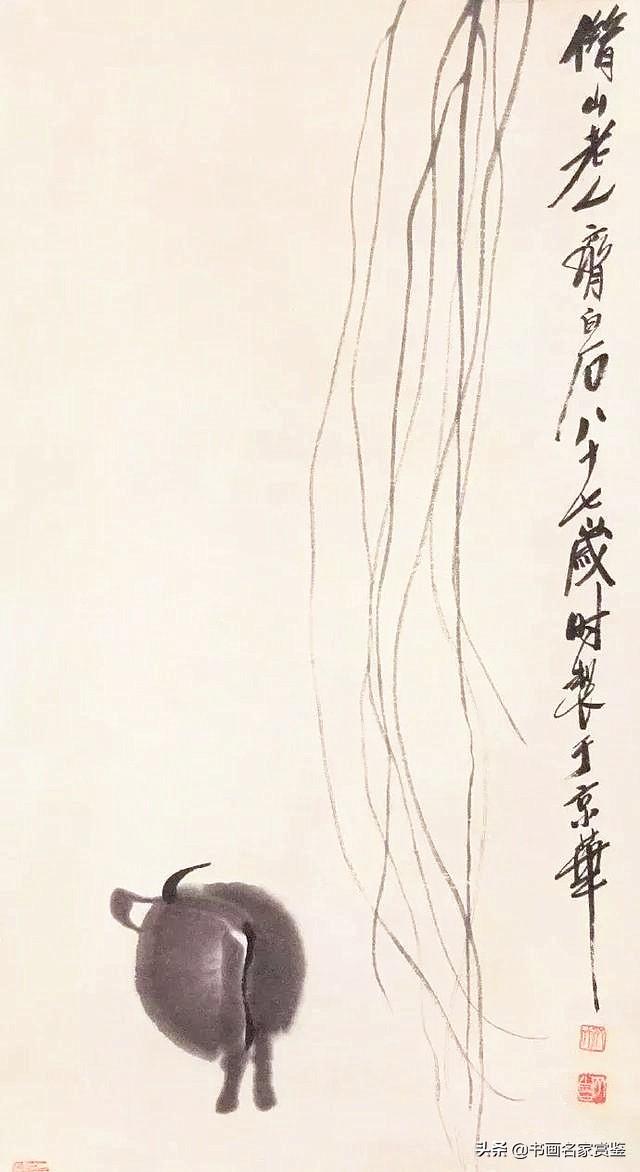 借山老人齊白石八十七歲时製于京華
头条 @书画名家赏鉴